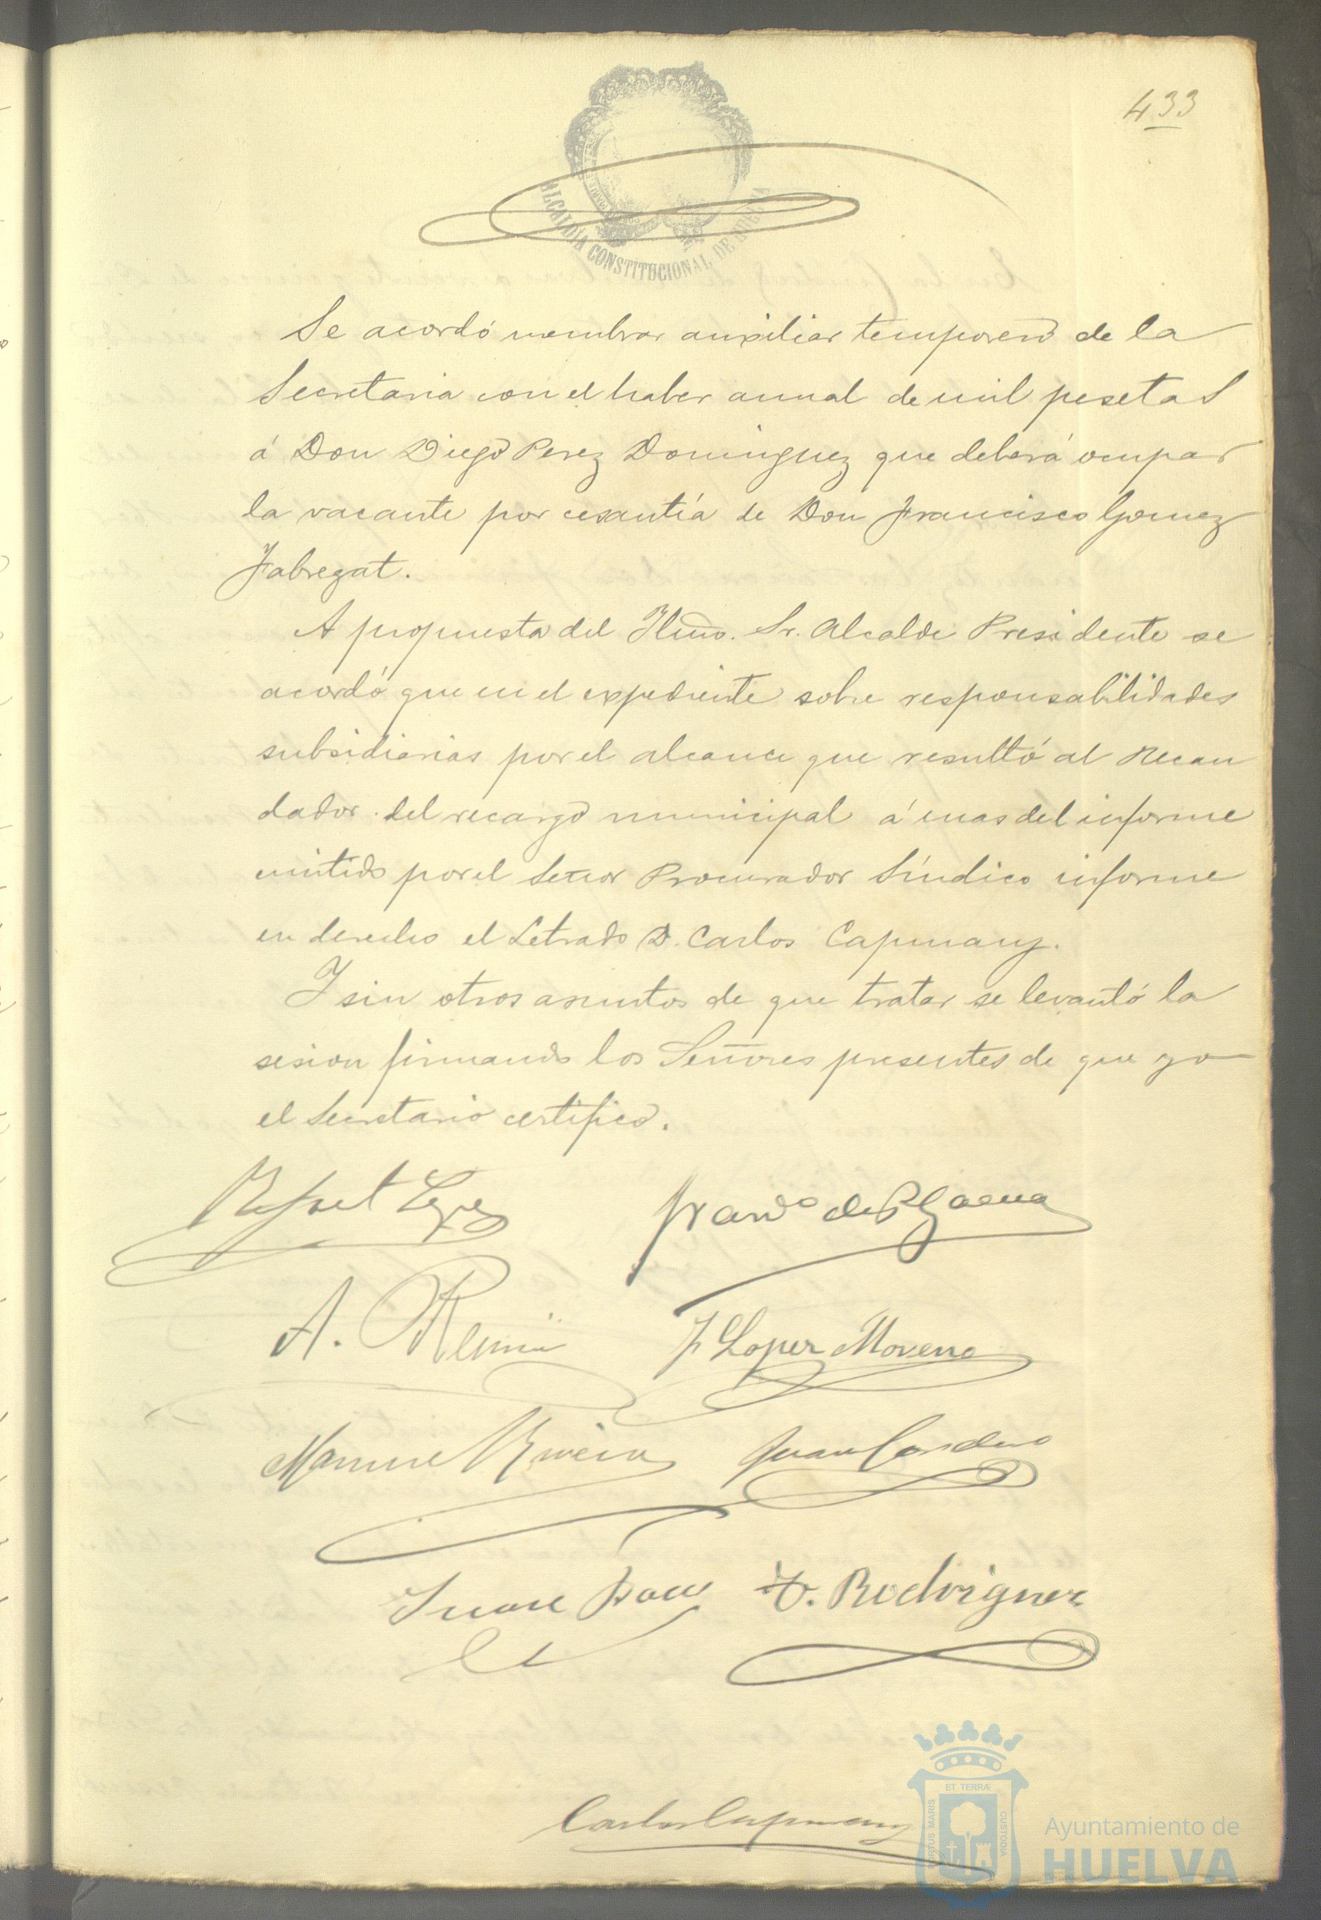 433
ALCALDÍA CONSTITUCIONAL DE HUELVA
Se acordó nombrar auxiliar temporero de la
Secretaria con el haber anual de mil pesetas
á Don Diego Perez Dominguez que deberá ocupar
la vacante por cesantía de Don Francisco Gomez
Fabregat.
A propuesta del Iltmo. Sr. Alcalde Presidente se
acordó que en el expediente sobre responsabilidades
subsidiarias por el alcance que resultó al Recau
dador del recargo municipal á mas del informe
emitido por el Señor Procurador Síndico informe
en derecho el Letrado D. Carlos Capmany.
Y sin otros asuntos de que tratar se levantó la
sesion firmando los Señores presentes de que yo
el Secretario certifico.
Rafael Lopez
de
A.
F Lopez Moreno
Manuel Rivera
Juan Cordero
F. Rodriguez
Carlos Capmany
ET TERRÆ
PORTUS MARIS
CUSTODIA
Ayuntamiento de
HUELVA